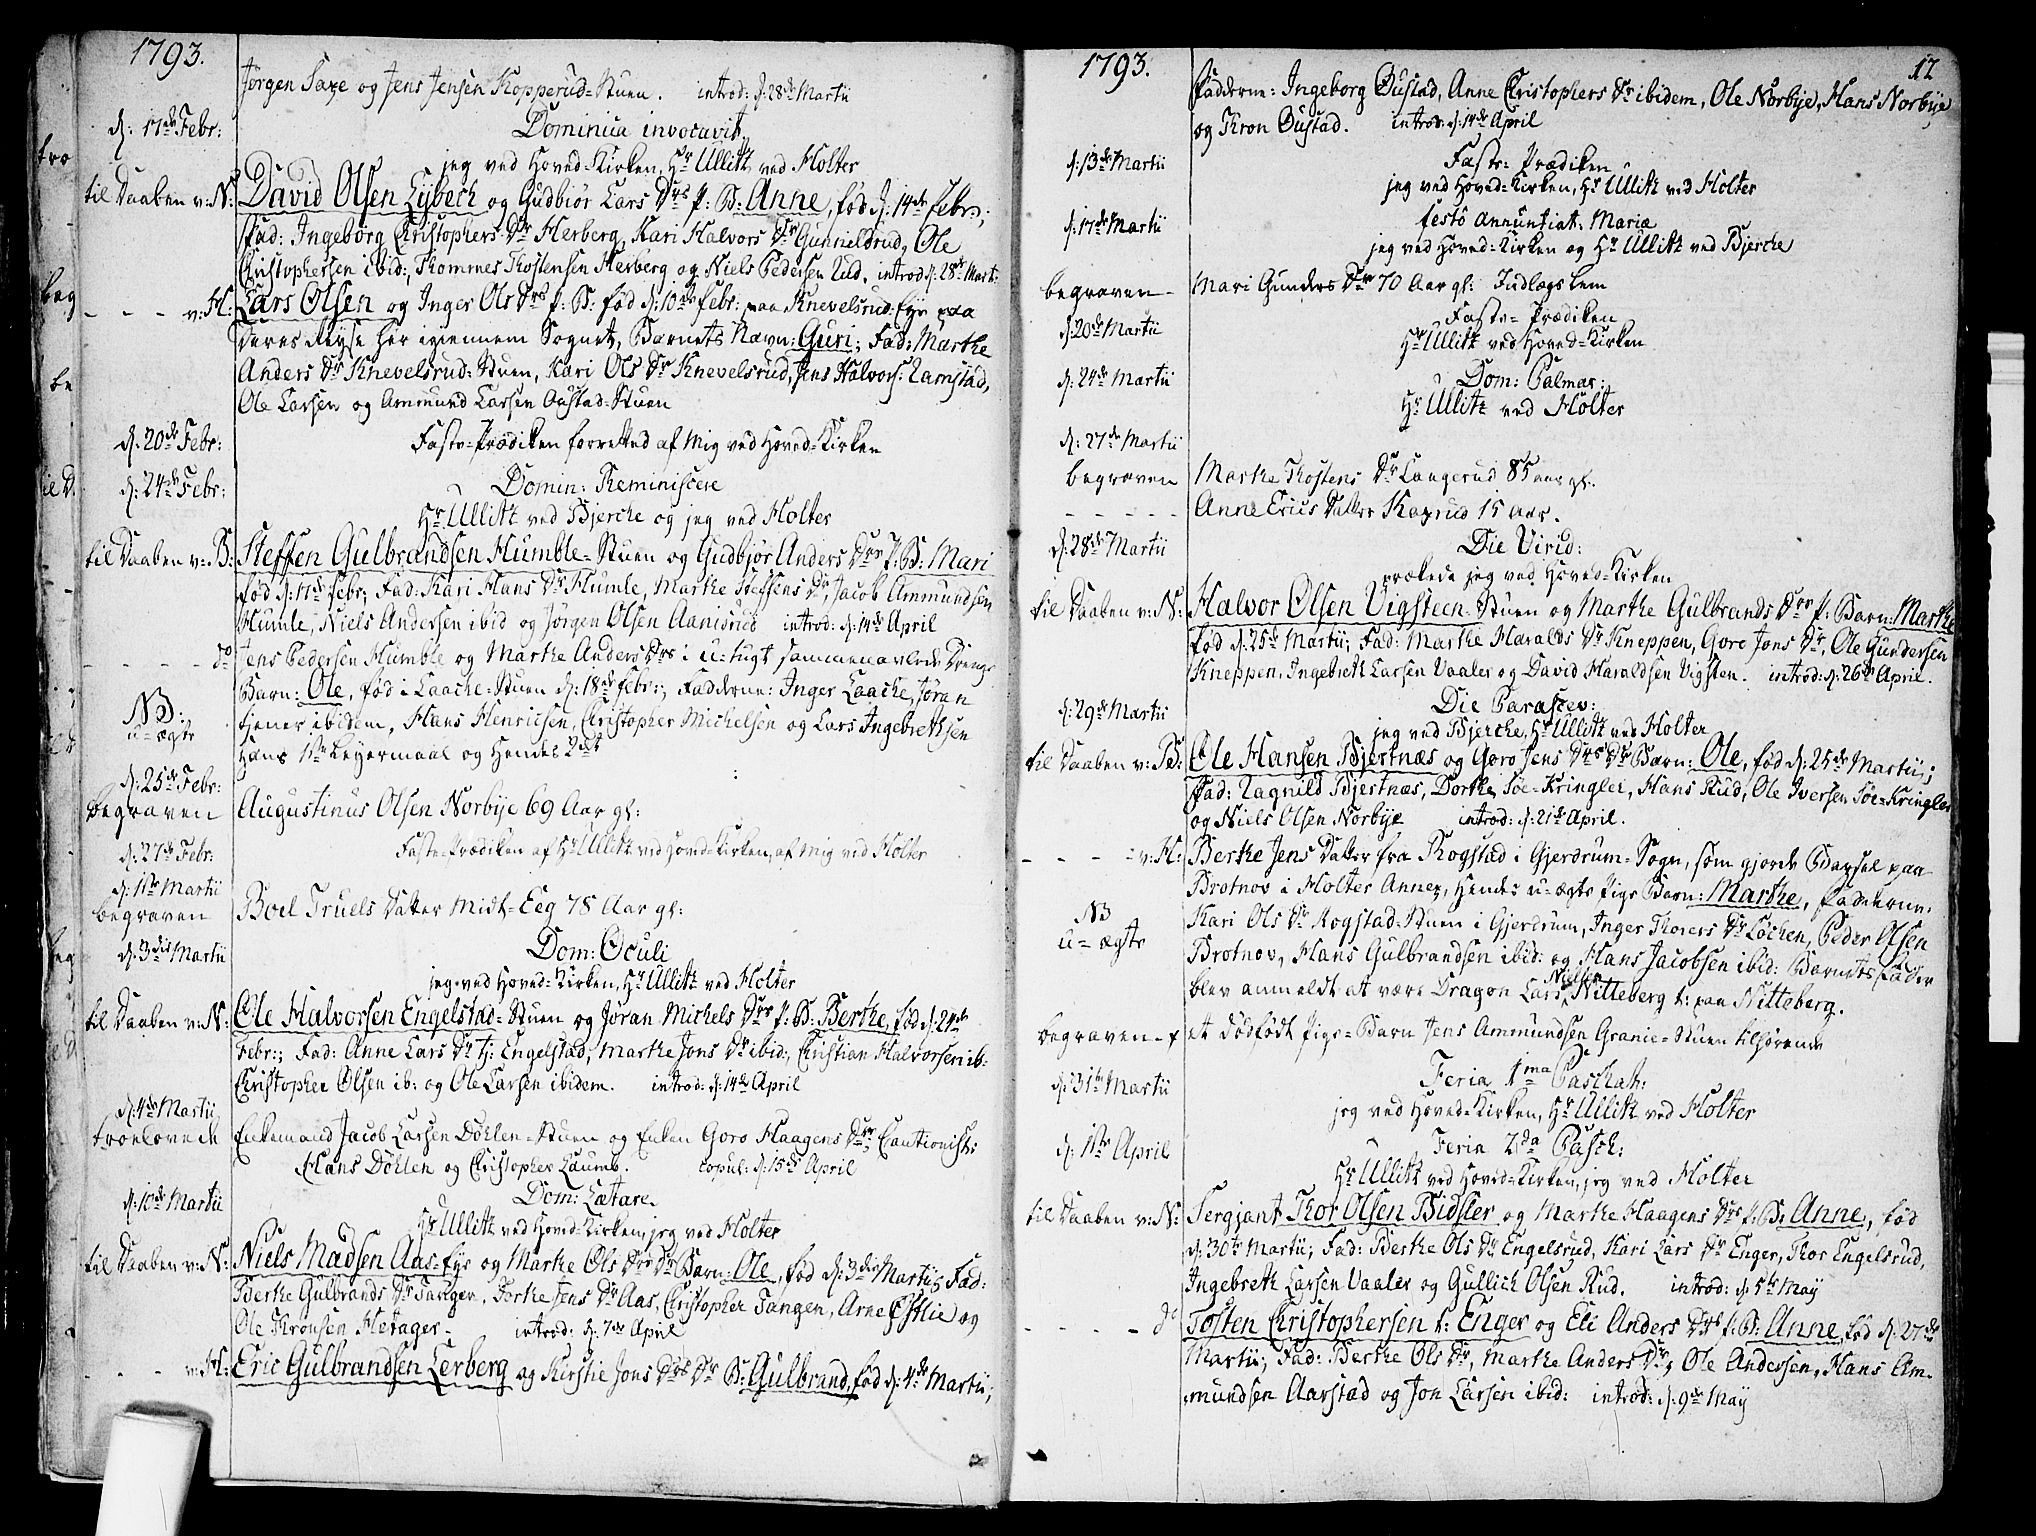 1793.
Jørgen Saxe og Jens Jensen Kopperud-Stuen. introd: d: 28de Martii
d: 17de Febr: Dominica invocavit
jeg ved Hoved-Kirken, Hr Ullitz ved Holter
til Daaben v: N: David Olsen Lybech og Gudbiør Lars Drs P: B: Anne, fød d: 14de Febr:;
Fad: Ingeborg Christophers Dr Herberg, Kari Halvors Dr Gunnieldrud, Ole
Christophersen ibid:, Thommes Thostensen Herberg og Niels Pedersen Rud. introd: d: 28de Mart:
- - - v: H: Lars Olsen og Inger Ols Drs P: B: fød d: 10de Febr: paa Knevelsrud-Eye paa
deres Reyse her igiennem Sognet, Barnets Navn: Guri; Fad: Marthe
Anders Dr Knevelsrud-Stuen, Kari Ols Dr Knevelsrud, Jens Halvors: Ramstad,
Ole Larsen og Ammund Larsen Oustad-Stuen
d: 20de Febr: Faste-Prædiken forretted af Mig ved Hoved-Kirken
d: 24de Febr: Domin: Reminiscere
Hr Ullitz ved Bjerche og jeg ved Holter
til Daaben v: B: Steffen Gulbrandsen Humble-Stuen og Gudbjør Anders Drs P: B: Mari
fød d: 17de Febr; Fad: Kari Hans Dr Humle, Marthe Steffens Dr, Jacob Ammundsen
Humle, Niels Andersen ibid og Jørgen Olsen Aanisrud introd: d: 14de April
- - - - - do Jens Pedersen Humble og Marthe Anders Drs i u-tugt sammenavlede Drenge
Barn: Ole, fød i Laache-Stuen d: 18de Febr:; Fadderne: Inger Laache, Jøran
NB: u-ægte tjener ibidem, Hans Henricsen, Christopher Michelsen og Lars Ingebrethsen
Hans 1ste Leyermaal og Hendes 2det
d: 25de Febr:
begraven Augustinus Olsen Norbye 69 Aar gl:
d: 27de Febr: Faste-Prædiken af Hr Ullitz ved Hoved-Kirken, af mig ved Holter
d: 1ste Martii
begraven Boel Truels Datter Midt-Eeg 78 Aar gl:
d: 3die Martii Dom: Oculi
jeg ved Hoved-Kirken, Hr Ullitz ved Holter
til Daaben v: N: Ole Halvorsen Engelstad-Stuen og Jøran Michels Drs P: B: Berthe, fød d: 24de
Febr:; Fad: Anne Lars Dr tj: Engelstad, Marthe Jons Dr ibid:, Christian Halvorsen ib:
Christopher Olsen ib: og Ole Larsen ibidem. introd: d: 14de April
d: 4de Martii
troelovede Enkemand Jacob Larsen Döhlen-Stuen og Enken Goro Haagens Dtr; Cautionist:
Hans Döhlen og Christopher Laumb. copul: d: 15de April
d: 10de Martii Dom: Lætare
Hr Ullitz ved Hoved-Kirken, jeg ved Holter
til Daaben v: N: Niels Madsen Aas-Eye og Marthe Ols Drs Dr Barn: Ole, fød d: 3die Martii; Fad:
Berthe Gulbrands Dr Tangen, Dorthe Jens Dr Aas, Christopher Tangen, Arne Estlie og
Ole Thronsen Hexager introd: d: 7de April
- - - v: H: Eric Gulbrandsen Lerberg og Kirstie Jons Drs Dr B: Gulbrand, fød d: 4de Martii;
1793.
17
Fadderne: Ingeborg Oustad, Anne Christophers Dr ibidem, Ole Norbye, Hans Norbye
og Thron Oustad. introd: d: 14de April
d: 13de Martii Faste-Prædiken
jeg ved Hoved-Kirken, Hr Ullitz ved Holter
d: 17de Martii festo Annuntiat: Mariæ
jeg ved Hoved-Kirken og Hr Ullitz ved Bjerche
begraven - Mari Gunders Dr 70 Aar gl: Indlægs lem
d: 20de Martii Faste-Prædiken
Hr Ullitz ved Hoved-Kirken
d: 24de Martii Dom: Palmar:
Hr Ullitz ved Holter
d: 27de Martii
begraven Marthe Thostens Dr Laugerud 85 aar gl:
- - - - - Anne Erics Datter Kaxrud 15 aar.
d: 28de Martii Die Virid:
prækede jeg ved Hoved-Kirken
til Daaben v: N: Halvor Olsen Vigsteen-Stuen og Marthe Gulbrands Drs P: Barn: Marthe
fød d: 25de Martii; Fad: Marthe Haralds Dr Kneppen, Goro Jons Dr, Ole Gundersen
Kneppen, Ingebreth Larsen Vaaler og David Haraldsen Vigsten. introd: d: 26de April.
d: 29de Martii Die Parascev:
jeg ved Bjerche, Hr Ullitz ved Holter
til Daaben v: B: Ole Hansen Bjertnæs og Goro Jens Drs Dr Barn: Ole, fød d: 25de Martii;
Fad: Ragnild Bjertnæs, Dorthe Søe-Kringler, Hans Rud, Ole Iversen Søe-Kringler
og Niels Olsen Norbye introd: d: 21de April.
- - - - v: H: Berthe Jens Datter fra Rogstad i Gjerdrum-Sogn, som gjorde Barsel paa
Brotnov i Holter Annex, Hendes u-ægte Pige Barn: Marthe, Fadderne:
NB u-ægte Kari Ols Dr Rogstad-Stuen i Gjerdrum, Inger Thorers Dr Løchen, Peder Olsen
Brotnov, Hans Gulbrandsen ibid: og Hans Jacobsen ibid: Barnets Fader
blev anmeldt at være Dragon Lars Nielsen Nitteberg t: paa Nitteberg.
begraven - et dödfödt Pige-Barn Jens Ammundsen Granie-Stuen tilhørende
d: 31te Martii Feria 1ma Paschat:
jeg ved Hoved-Kirken, Hr Ullitz ved Holter
d: 1ste April Feria 2da Pasch:
Hr Ullitz ved Hoved-Kirken, jeg ved Holter
til Daaben v: N: Sergjant Thor Olsen Bidsler og Marthe Haagens Drs P: B: Anne, fød
d: 30te Martii; Fad: Berthe Ols Dr Engelsrud, Kari Lars Dr Enger, Thor Engelsrud,
Ingebreth Larsen Vaaler og Gullich Olsen Rud. introd: d: 5te May
- - - - do Tosten Christophersen t: Enger og Eli Anders Drs P: B: Anne, fød d: 27de
Martii; Fad: Berthe Ols Dr, Marthe Anders Dr, Ole Andersen, Hans Am-
mundsen Aarstad og Jon Larsen ibid: introd: d: 9de May